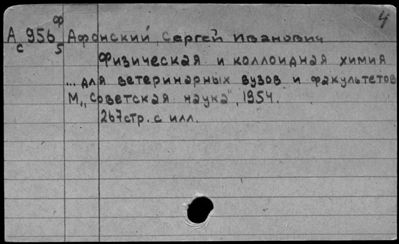 ф 4
А 956 Афонский, Сергей Иванович
с 5
Физическая и коллоидная химия
... для ветеринарных вузов и факультетов
М., "Советская наука", 1954.
267стр. с илл.